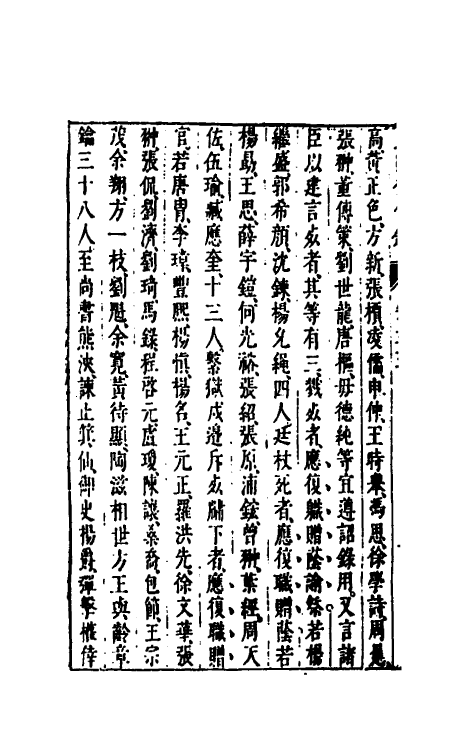 高黃正色方新張檟凌儒申仲王時舉馮思徐學詩周冕
張翀董傳策劉世龍唐樞毋德純等宜遵詔錄用又言諸
臣以建言死者其等有三戮死者應復職贈蔭諭祭若楊
繼盛郭希顏沈鍊楊允繩四人廷杖死者應復職贈蔭若
楊最王思薛宇鎧何光裕張紹張原浦鋐曾翀葉經周天
佐伍瑜臧應奎十三人繫獄戍邊斥死牖下者應復職贈
官若唐冑李璋豐熙楊慎楊名王元正羅洪先徐文華張
翀張侃劉濟劉琦馬錄程啓元盧瓊陳讓桑喬包節王宗
茂余翔方一枝劉魁余寬黃待顯陶滋相世方王與齡章
鑰三十八人至尚書熊浹諫止箕仙御史楊爵彈擊權倖